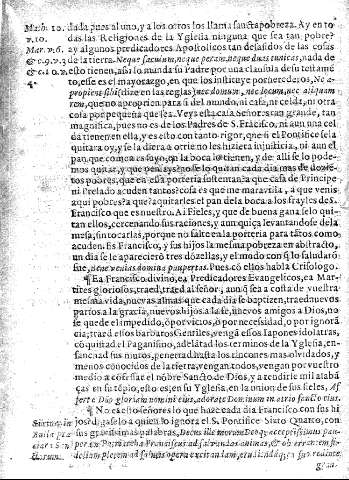 Math. 10. dada pues al uno, y a los otros los llama santa pobreza. Ay en to
v.10. das las Religiones de la Yglesia ninguna que sea tan pobre?
Mar. v. 6. ay algunos predicadores Apostolicos tan desasidos de las cosas
& c.9.v.3 de la tierra. Neque sacculum, neque peram, neque duas tunicas, nada de
& c.10.v. esto tienen, assi lo manda su Padre por una clausula de su testamē
4. to, esse es el mayorazgo, en que los instituye por herederos, Ne a-
propient sibi (dize en las reglas) nec domum, nec locum, nec aliquam
rem, que no apropien para si del mundo, ni casa, ni celda, ni otra
cosa por pequeña que sea. Veys esta casa señores tan grande, tan
magnifica, pues no es de los Padres de S. Francisco, ni aun una cel
da tienen en ella, y es esto con tanto rigor, que si el Pontifice se la
quitara oy, y se la diera a otrie no les hiziera injusticia, ni aun el
pan que comen es suyo, en la boca lo tienen, y de alli se lo pode-
mos quitar, y que
tos pobres, que en essa porteria sustentara que casa de Principe
ni Prelado acuden tantos? cosa es que me maravilla, a que venis
aqui pobres? a que? a quitarles el pan de la boca a los frayles de S.
Francisco que es nuestro. Ai Fieles, y que de buena gana se lo qui-
tan ellos, cercenando sus raciones, y aun quiça levantandose de la
mesa, sin tocarlas, porque no falte en la porteria para tātos como
acuden. Es Francisco, y sus hijos la mesma pobreza en abstracto,
un dia se le aparecierō tres dōzellas, y el modo con que lo saludarō
fue, bene venias domina paupertas. Pues cō ellos habla Crisologo.
¶ Ea Francisco divino, ea Predicadores Evangelicos, ea Mar-
tires gloriosos, traed, traed al señor, aunque sea a costa de vuestra
mesma vida, nuevas almas que cada dia se baptizen, traed nuevos
partos a la gracia, nuevos hijos a la fe, nuevos amigos a Dios, no
se quede el impedido, o por vicios, o por necesidad, o por ignorā
cia; traed essos barbaros Gentiles, vengā essos Iapones idolatras,
cōquistad el Paganismo, adelātad los terminos de la Yglesia, en-
sanchad sus muros, penetrad hasta los rincones mas olvidados, y
menos conocidos de la tierra, vengan todos, vengan por vuestro
medio a cōfessar el nōbre Santo de Dios, y a rendirle mil alabā
ças en su tēplo, esto es, en su Yglesia, en la union de sus fieles, Af
ferte Dño gloriam nomini eius, adorate Dominum in atrio sancto eius.
¶ No ea esto señores lo que haze cada dia Francisco con sus hi
jos? digaselo a quien lo ignora el S. Pontifice Sixto Quarto, con
sus gravissimas palabras,
per en Patriarcha Franciscus ad salvandas animas, & ob errantem fi-

gena.